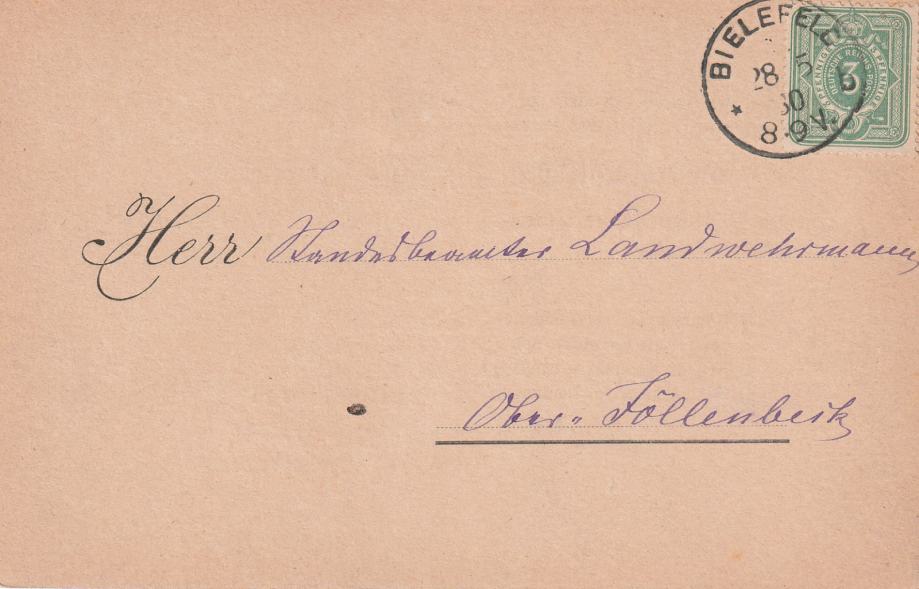 BIELEFELD
28 5
80
8-9 V.
3 PFENNIG
3
DEUTSCHE REICHS-POST
Herr Standesbeamter Landwehrmann
Ober-Jöllenbeck